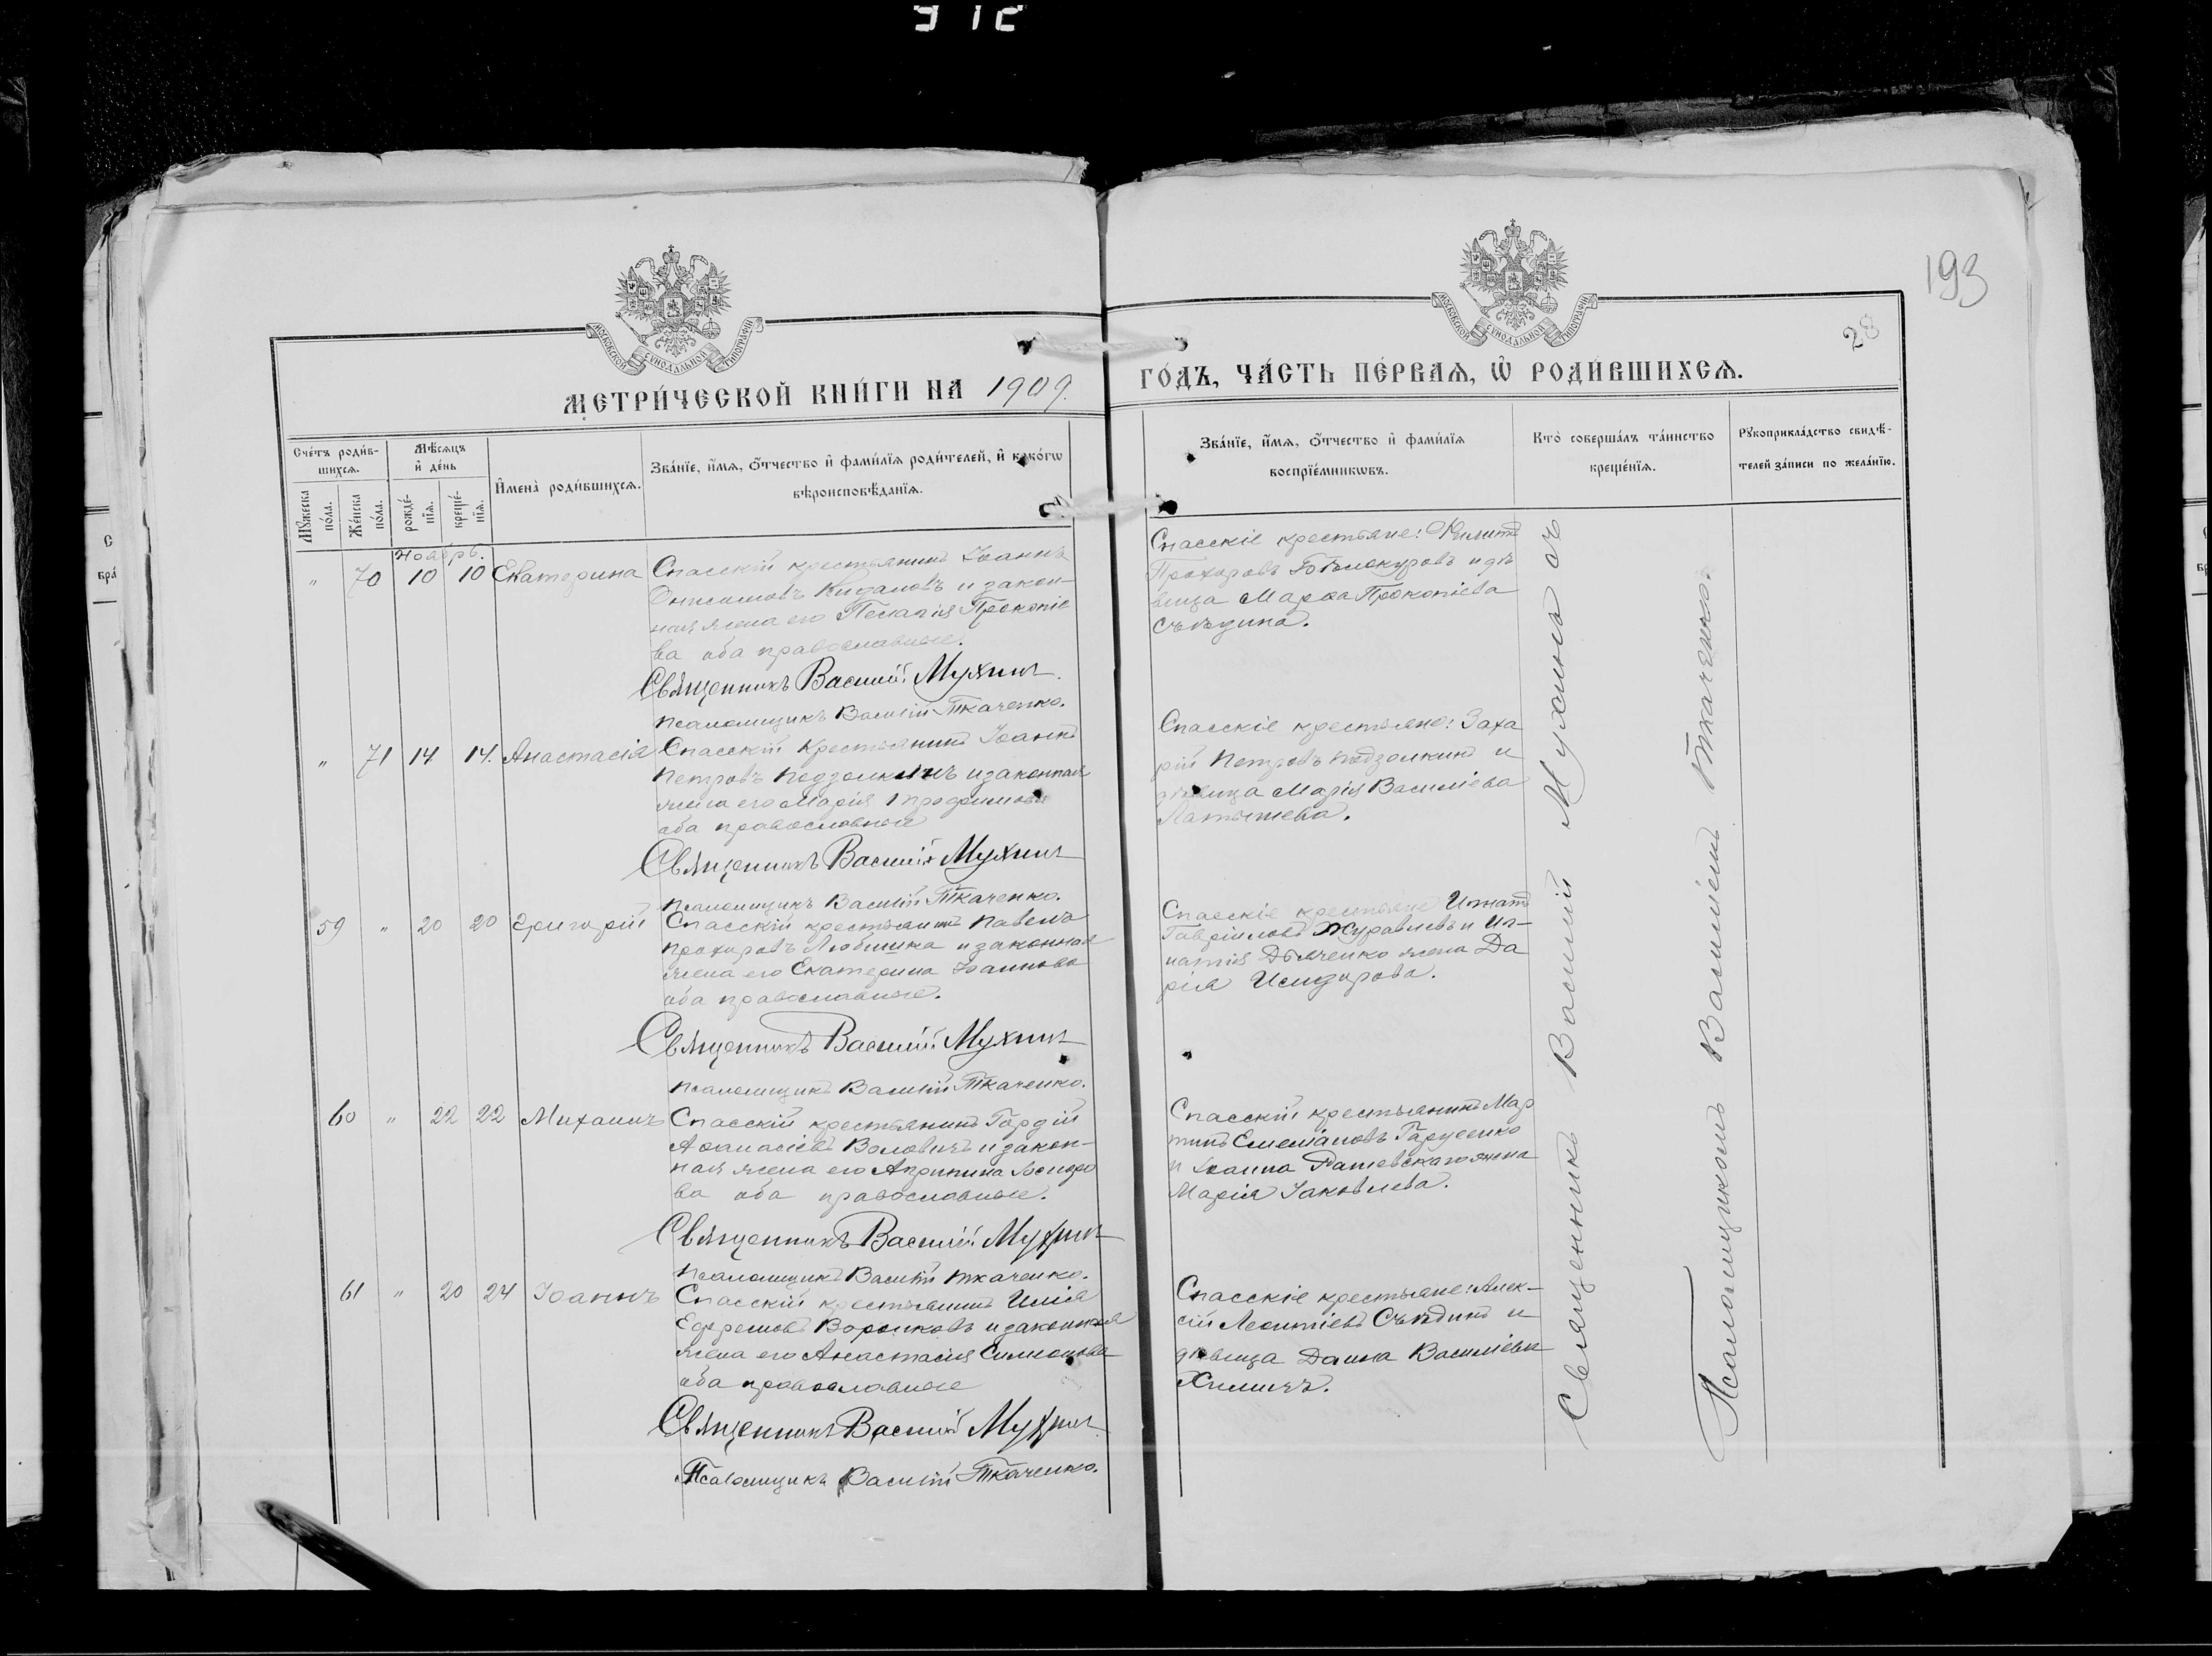 193
28
МОСКОВСКОЙ СѴНОДАЛЬНОЙ ТИПОГРАФІИ
МОСКОВСКОЙ СѴНОДАЛЬНОЙ ТИПОГРАФІИ
МЕТРИ́ЧЕСКОЙ КНИ́ГИ НА 1909.
ГО́ДЪ, ЧА́СТЬ ПЕ́РВАѦ, Ѡ҆ РОДИ́ВШИХСѦ.
Сче́тъ роди́в-
шихсѧ.
Мѣ́сѧцъ
и҆ де́нь
Мꙋ́жеска
по́ла.
Же́нска
по́ла.
рожде́-
нїѧ.
креще́-
нїѧ.
И҆мена̀ роди́вшихсѧ.
Зва́нїе, и҆́мѧ, ѻ҆́тчество и҆ фами́лїѧ роди́телей, и҆ како́гѡ
вѣроисповѣ́данїѧ.
Зва́нїе, и҆́мѧ, ѻ҆́тчество и҆ фами́лїѧ
воспрїе́мникѡвъ.
Кто̀ соверша́лъ та́инство
креще́нїѧ.
Рꙋкоприкла́дство свидѣ́-
телей за́писи по жела́нїю.
Ноябрь.
" 70 10 10 Екатерина
Спасскій крестьянинъ Іоаннъ
Онисимовъ и закон-
ная жена его Пелагія Прокопіе
ва оба православные.
Священникъ Василій Мухинъ.
Псаломщикъ Василій Ткаченко.
Спасскіе крестьяне:
Прохоровъ Бѣлокуровъ и дѣ
вица Марѳа Прокопіева
Съѣдина.
" 71 14 14. Анастасія
Спасскій крестьянинъ Іоаннъ
Петровъ Подзолкинъ и законная
жена его Марія
оба православные
Священникъ Василій Мухинъ
Псаломщикъ Василій Ткаченко.
Спасскіе крестьяне: Заха
рій Петровъ Подзолкинъ и
дѣвица Марія Василіева
Латышева.
59 " 20 20 Григорій
Спасскій крестьянинъ Павелъ
Прохоровъ и законная
жена его Екатерина Іоаннова
оба православные.
Священникъ Василій Мухинъ
Псаломщикъ Василій Ткаченко.
Спасскіе крестьяне Игнатъ
Гавріиловъ Журавлевъ и Иг-
натія Дьяченко жена Да
рія Исидорова.
60 " 22 22 Михаилъ
Спасскій крестьянинъ Гордій
Аѳанасіевъ Воловикъ и закон-
ная жена его Агрипина Исидоро
ва оба православные.
Священникъ Василій Мухинъ
Псаломщикъ Василій Ткаченко.
Спасскій крестьянинъ Мар
тинъ Емеліановъ Гарусенко
и Іоанна Рашевскаго жена
Марія Іаковлева.
61 " 20 24 Іоаннъ
Спасскій крестьянинъ Илія
Ефремовъ Воронковъ и законная
жена его Анастасія Симеонова
оба православные
Священникъ Василій Мухинъ
Псаломщикъ Василій Ткаченко.
Спасскіе крестьяне: Алек-
сій Леонтіевъ Съѣдинъ и
дѣвица Василіева
Священникъ Василій Мухинъ съ
Псаломщикомъ Василіемъ Ткаченко.